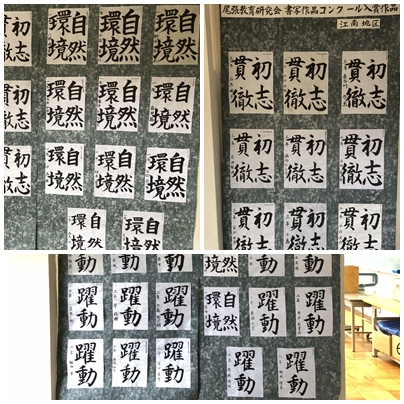 自然環境
自然環境
自然環境
初志
自然環境
自然環境
自然環境
初志
自然環境
自然環境
自然環境
初志
自然環境
自然環境
尾張教育研究会 書写作品コンクール入賞作品
江南地区
初志貫徹
初志貫徹
初志貫徹
初志貫徹
初志貫徹
初志貫徹
初志貫徹
初志貫徹
初志貫徹
動
動
動
然境
動
動
躍動
躍動
躍動
自然環境
躍動
躍動
躍動
躍動
躍動
躍動
躍動